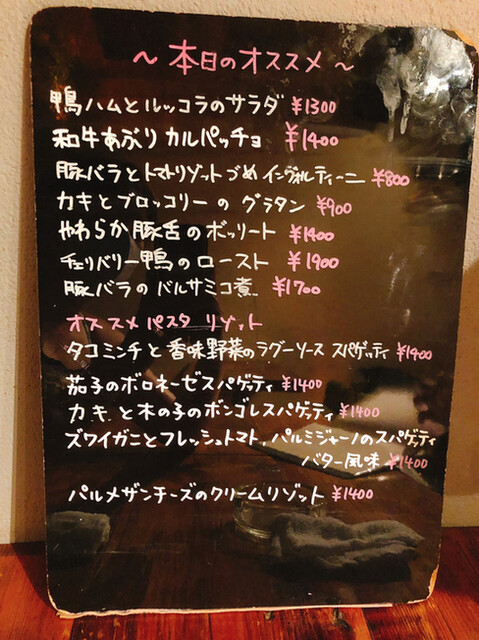 ～ 本日のオススメ ～
鴨ハムとルッコラのサラダ ¥1300
和牛あぶり カルパッチョ ¥1400
豚バラとトマトリゾットづめインヴォルティーニ ¥800
カキとブロッコリーの グラタン ¥900
やわらか豚舌のボッリート ¥1400
チェリバリー鴨のロースト ¥1900
豚バラの バルサミコ煮 ¥1700
オススメパスタ リゾット
タコミンチと香味野菜のラグーソース スパゲッティ ¥1400
茄子のボロネーゼスパゲティ ¥1400
カキ と木の子のボンゴレスパゲッティ ¥1400
ズワイガニとフレッシュトマト, パルミジャーノのスパゲティ
バター風味 ¥1400
パルメザンチーズのクリームリゾット ¥1400